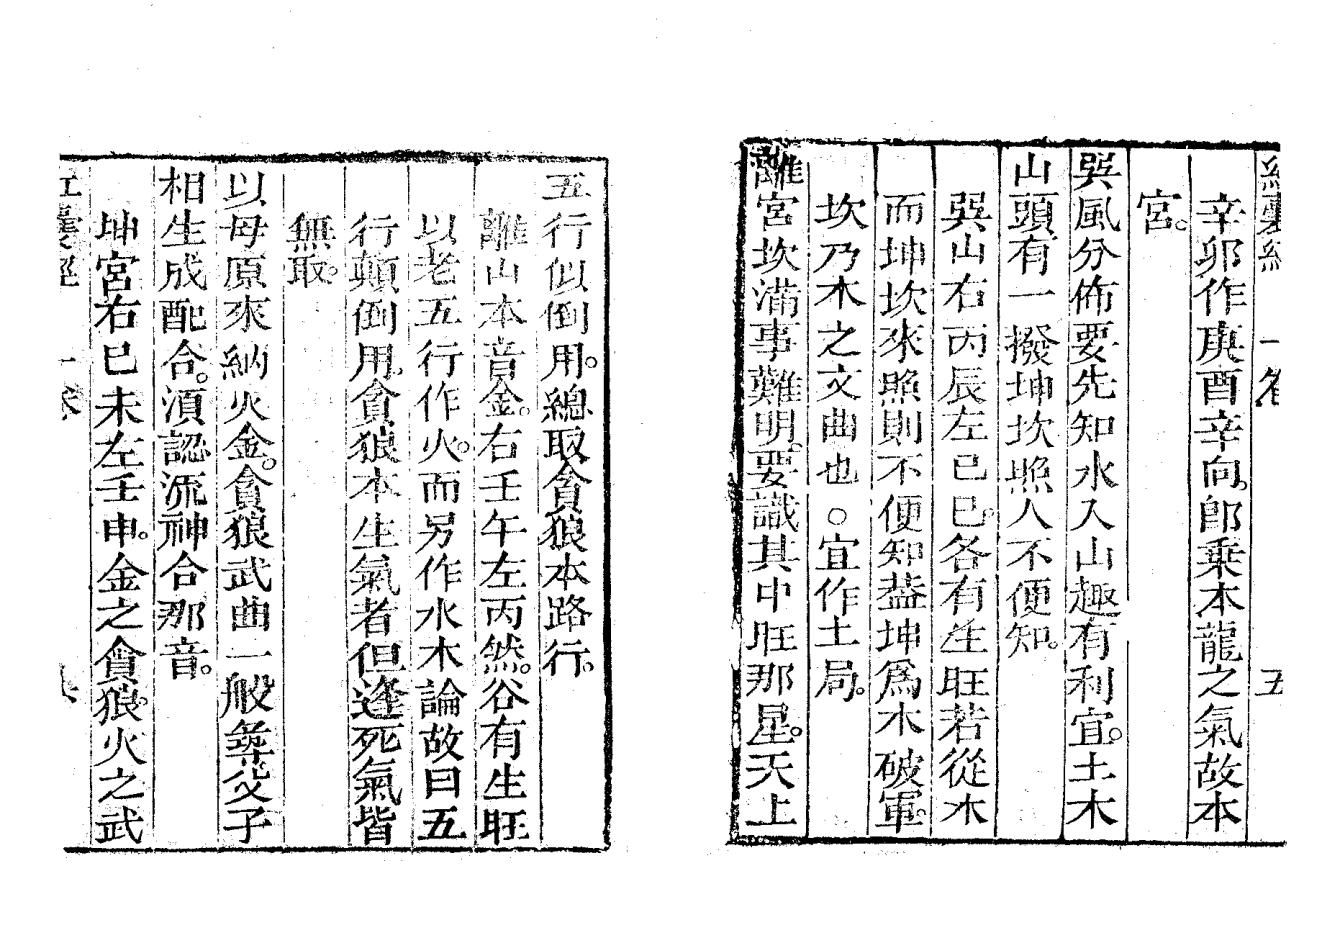 辛卯作庚酉辛向。郎乗本龍之氣故本
宮。
巽風分佈要先知水入山趣有利宜。土木
山頭有一撥坤坎照人不便知。
巽山右丙辰左巳巳。各有生旺若從木
而坤坎來照則不便知葢坤爲木破軍。
坎乃木之文曲也○宜作土局。
離宮坎滿事難明。要識其中旺那星。天上
五行似倒用。總取貪狼本路行。
離山本音金。右壬午左丙然。谷有生旺
以老五行作火。而另作水木論故曰五
行顛倒用。貪狼本生氣者但逢死氣皆
無取。
以母原來納火金。貪狼武曲一般彝父子
相生成配合。湏認流神合那音。
坤宮右巳未左壬申。金之貪狼。火之武